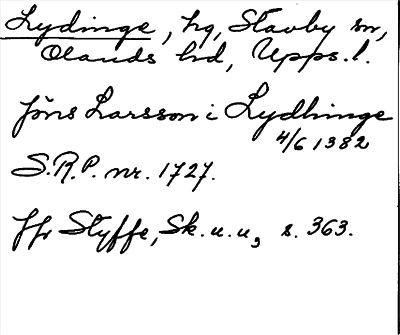 Lydinge, hg, Stavby sn,
Olands hd, Upps. l.
Jöns Larsson i Lydhinge
4/6 1382
S.R.P. nr. 1727.
Jfr Styffe, Sk. u. u, s. 363.